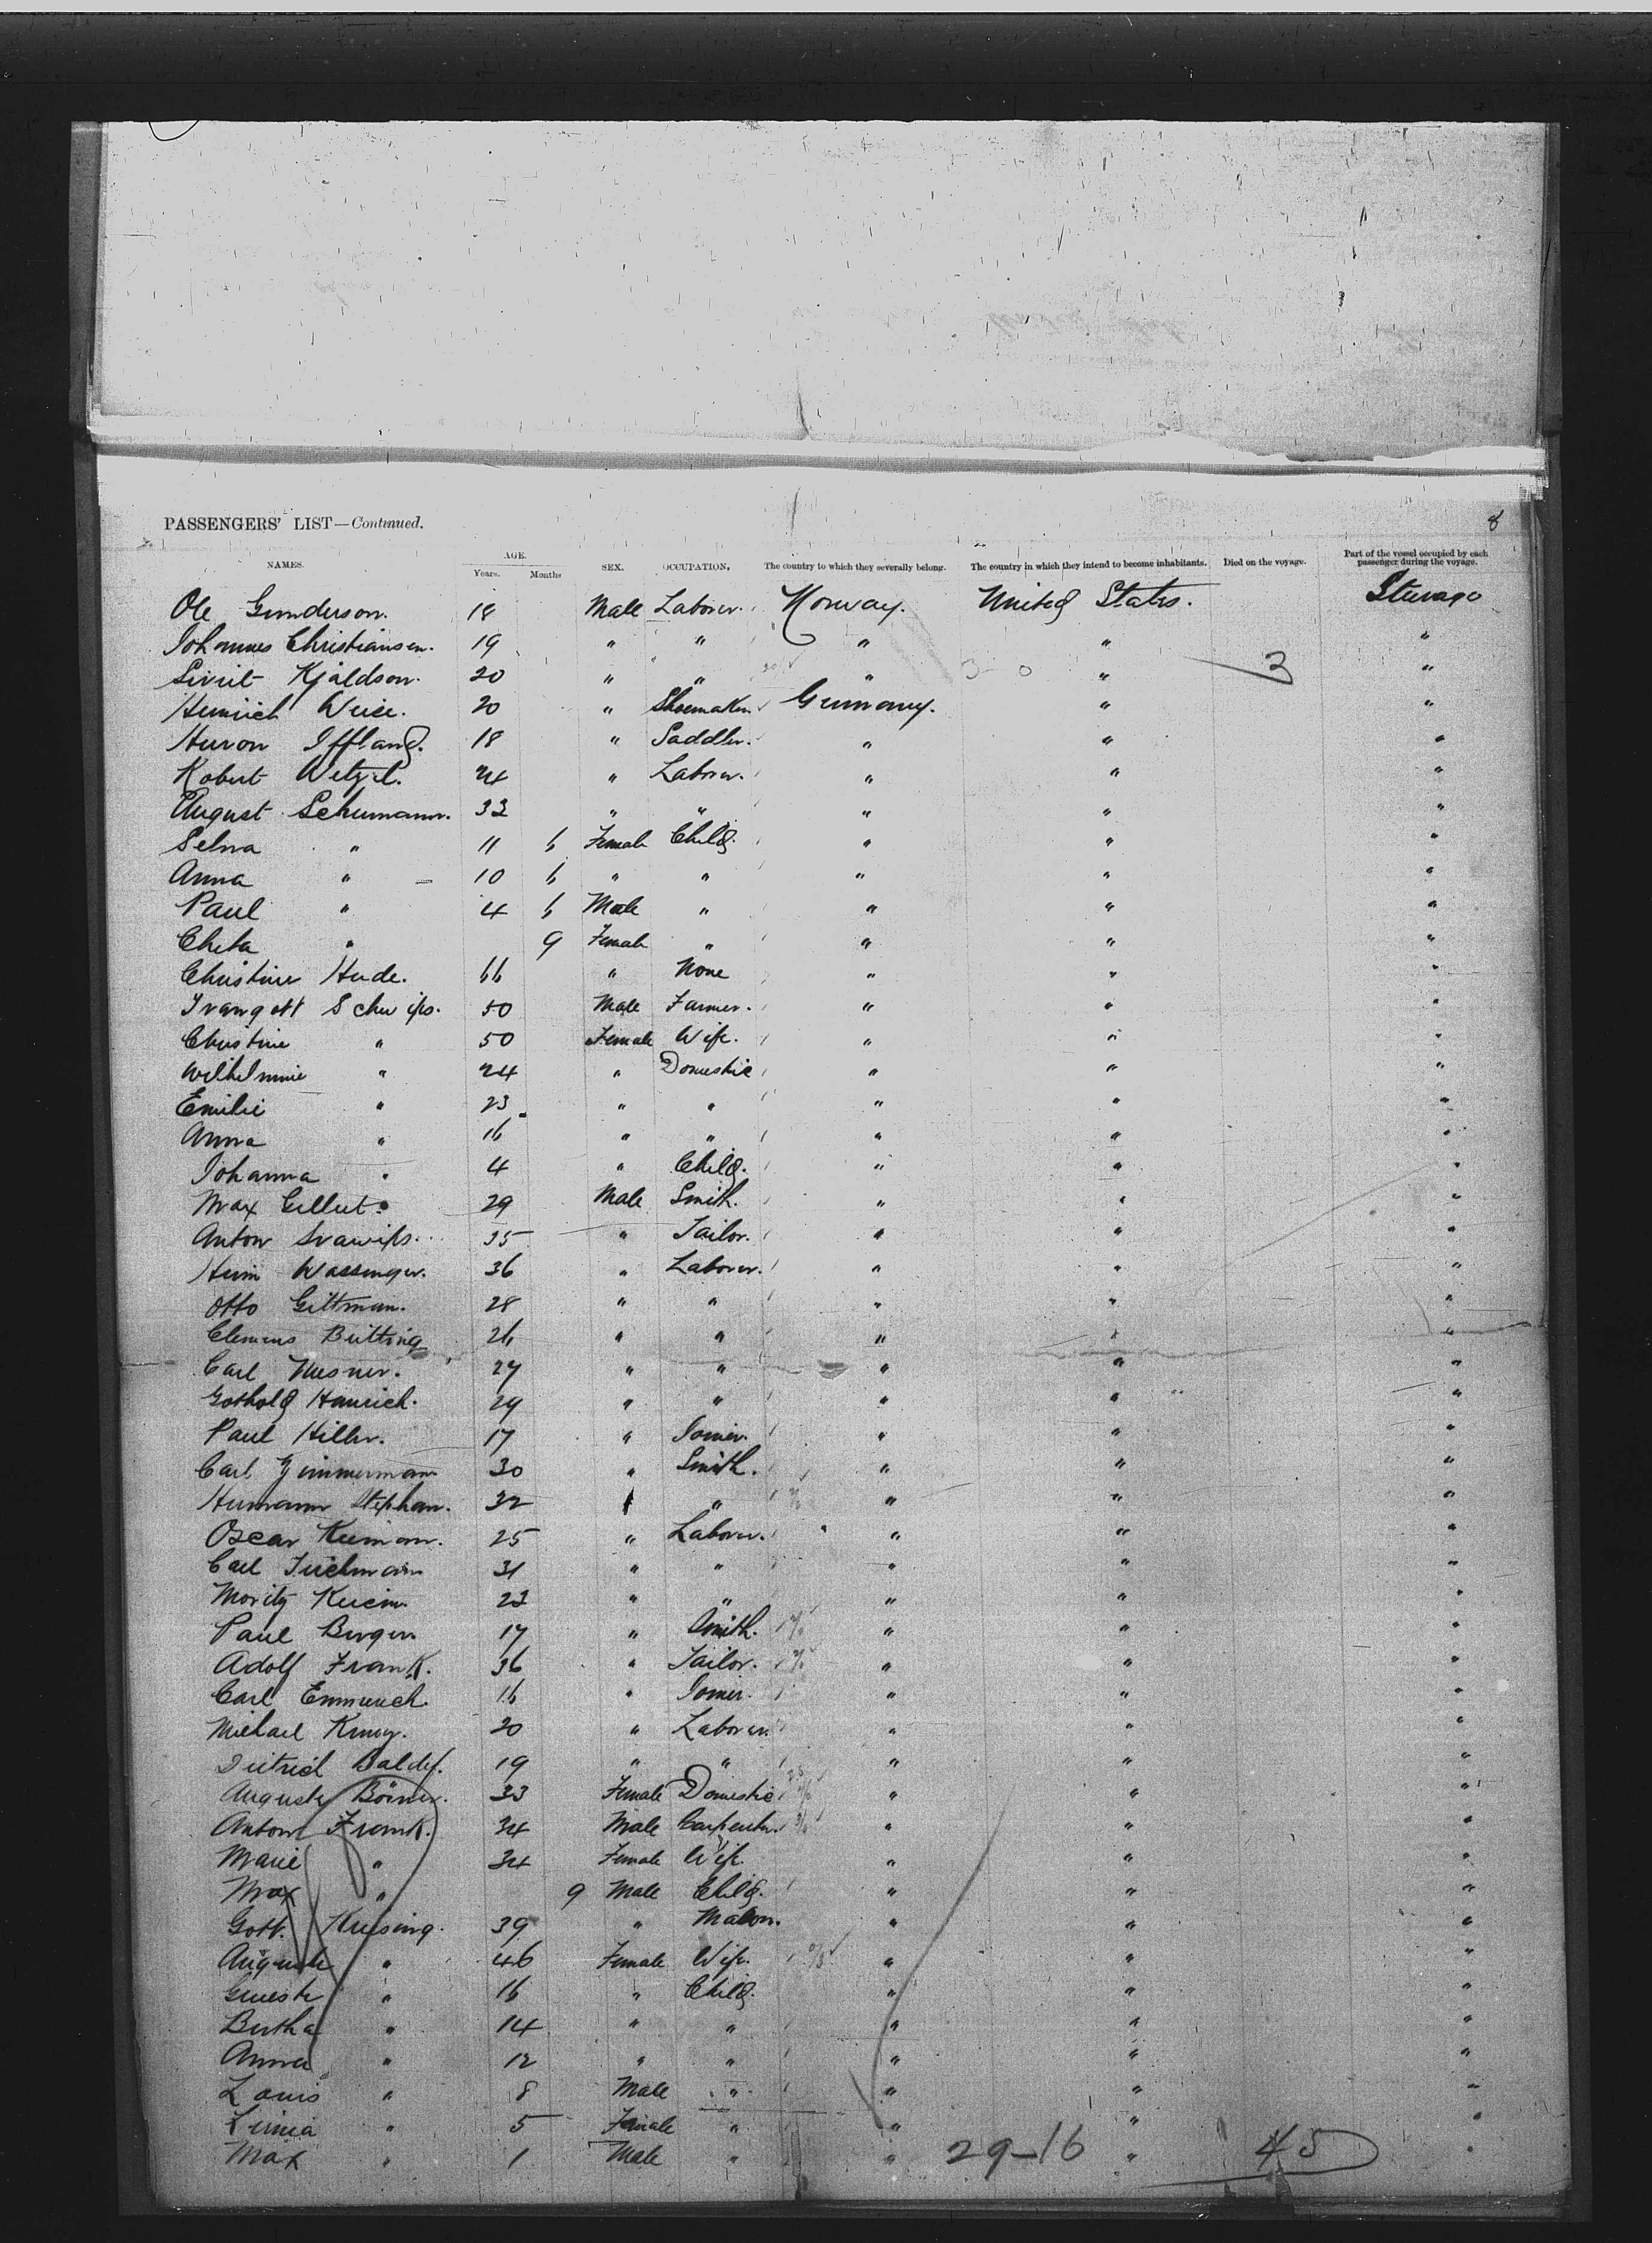 8
PASSENGERS' LIST—Continued.
NAMES. AGE. Years. Months SEX. OCCUPATION, The country to which they severally belong. The country in which they intend to become inhabitants. Died on the voyage. Part of the vessel occupied by each passenger during the voyage.
Ole Gunderson. 18 Male Laborer. Norway. United States. Steerage
Johannes Christiansen. 19 " " " " "
Kjäldson. 20 " " " 3-0 " 3 "
Heinrich 20 " Shoemaker. Germany. " "
Iffland. 18 " Saddler. " " "
Robert Wetzel. 24 " Laborer. " " "
August Schumann. 33 " " " " "
Selma " 11 6 Female Child. " " "
Anna " 10 6 " " " " "
Paul " 4 6 Male " " " "
" 9 Female " " " "
Christine Hude. 66 " None " " "
50 Male Farmer. " " "
Christine " 50 Female Wife. " " "
Wilhelmine " 24 " Domestic " " "
Emilie " 23 " " " " "
Anna " 16 " " " " "
Johanna " 4 " Child. " " "
Max Gellert. 29 Male Smith. " " "
Anton 35 " Tailor. " " "
Wassinger. 36 " Laborer. " " "
Otto Gittman. 28 " " " " "
Clemens Bütting 26 " " " " "
Carl 27 " " " " "
Gothold Hanrich. 29 " " " " "
Paul Hiller. 17 " Joiner. " " "
Carl Zimmermann 30 " Smith. " " "
Hermann Stephan. 32 " " " " "
Oscar 25 " Laborer. " " "
Carl 31 " " " " "
Moritz 23 " " " " "
Paul Berger 17 " Smith. " " "
Adolf Frank. 36 " Tailor. " " "
Carl Emmerich. 16 " Joiner. " " "
Michael 20 " Laborer. " " "
Dietrich 19 " " " " "
Auguste Börner. 33 Female Domestic " " "
Anton Frank. 34 Male Carpenter. " " "
Marie " 34 Female Wife. " " "
Max " 9 Male Child. " " "
Gott. 39 " Mason. " " "
Auguste " 46 Female Wife. " " "
" 16 " Child. " " "
Bertha " 14 " " " " "
Anna " 12 " " " " "
Louis " 8 Male " " " "
" 5 Female " " " "
Max " 1 Male " " 29-16 " 45 "